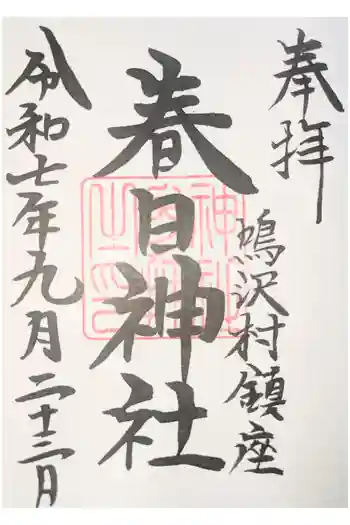 奉拝
鳴沢村鎮座
春日神社
令和七年九月二十三日